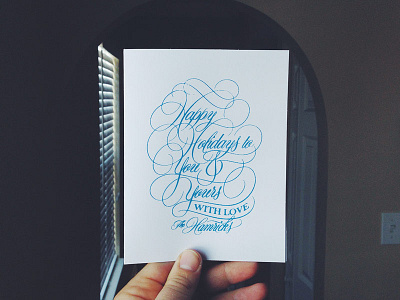 Happy
Holidays to
You, &
Yours
WITH LOVE
The Hamricks